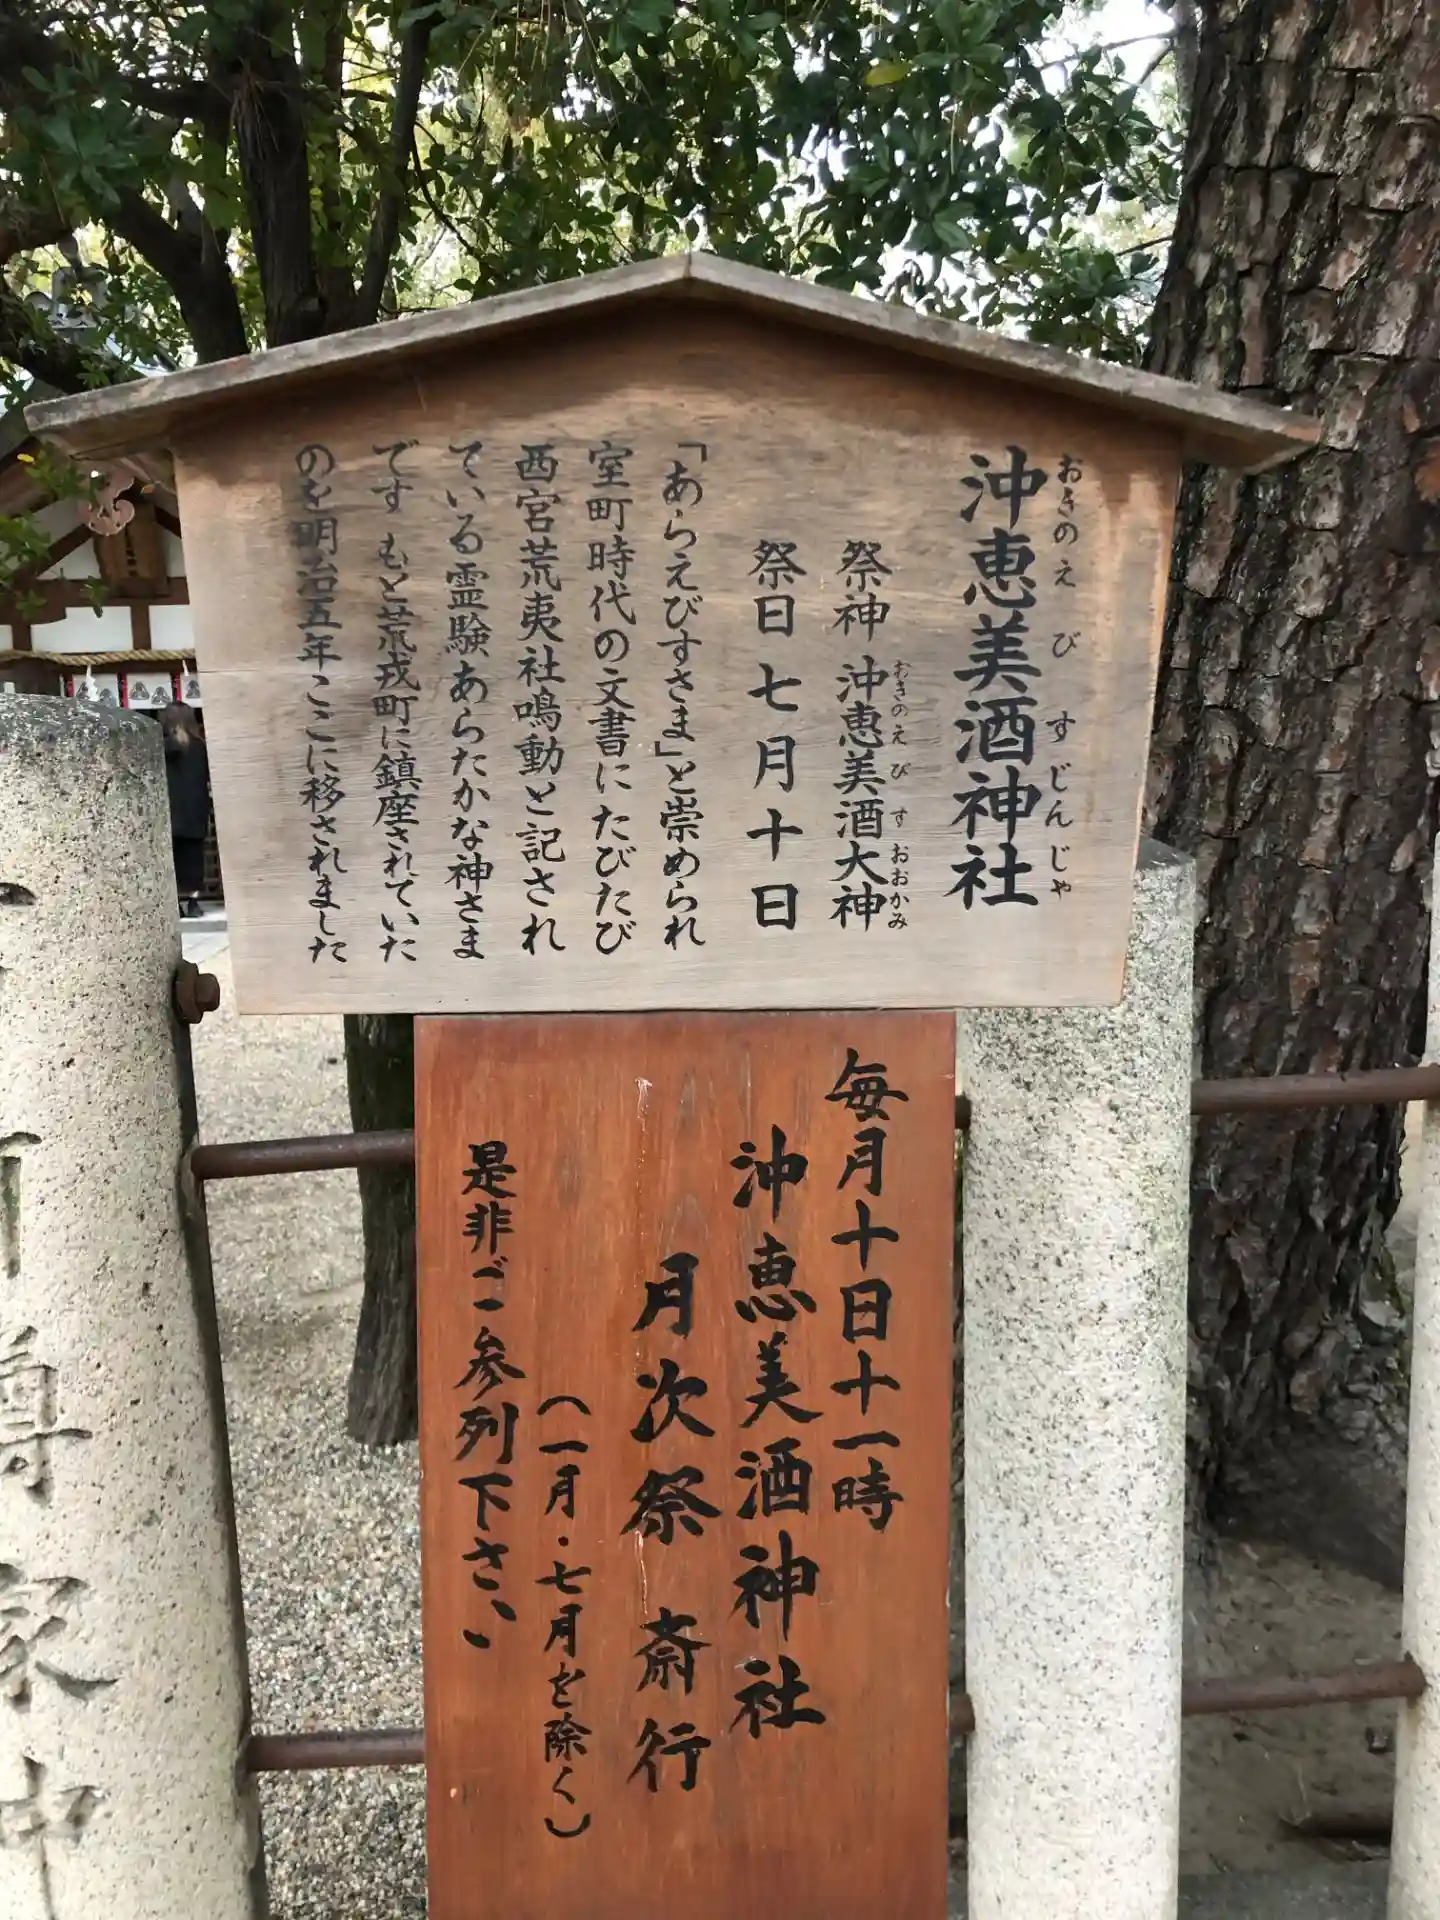 沖恵美酒神社
おきのえびすじんじゃ
祭神 沖恵美酒大神
おきのえびすおおかみ
祭日 七月十日
「あらえびすさま」と崇められ
室町時代の文書にたびたび
西宮荒夷社鳴動と記され
ている霊験あらたかな神さま
です もと荒戎町に鎮座されていた
のを明治五年ここに移されました
毎月十日十一時
沖恵美酒神社
月次祭 斎行
(一月・七月を除く)
是非ご参列下さい